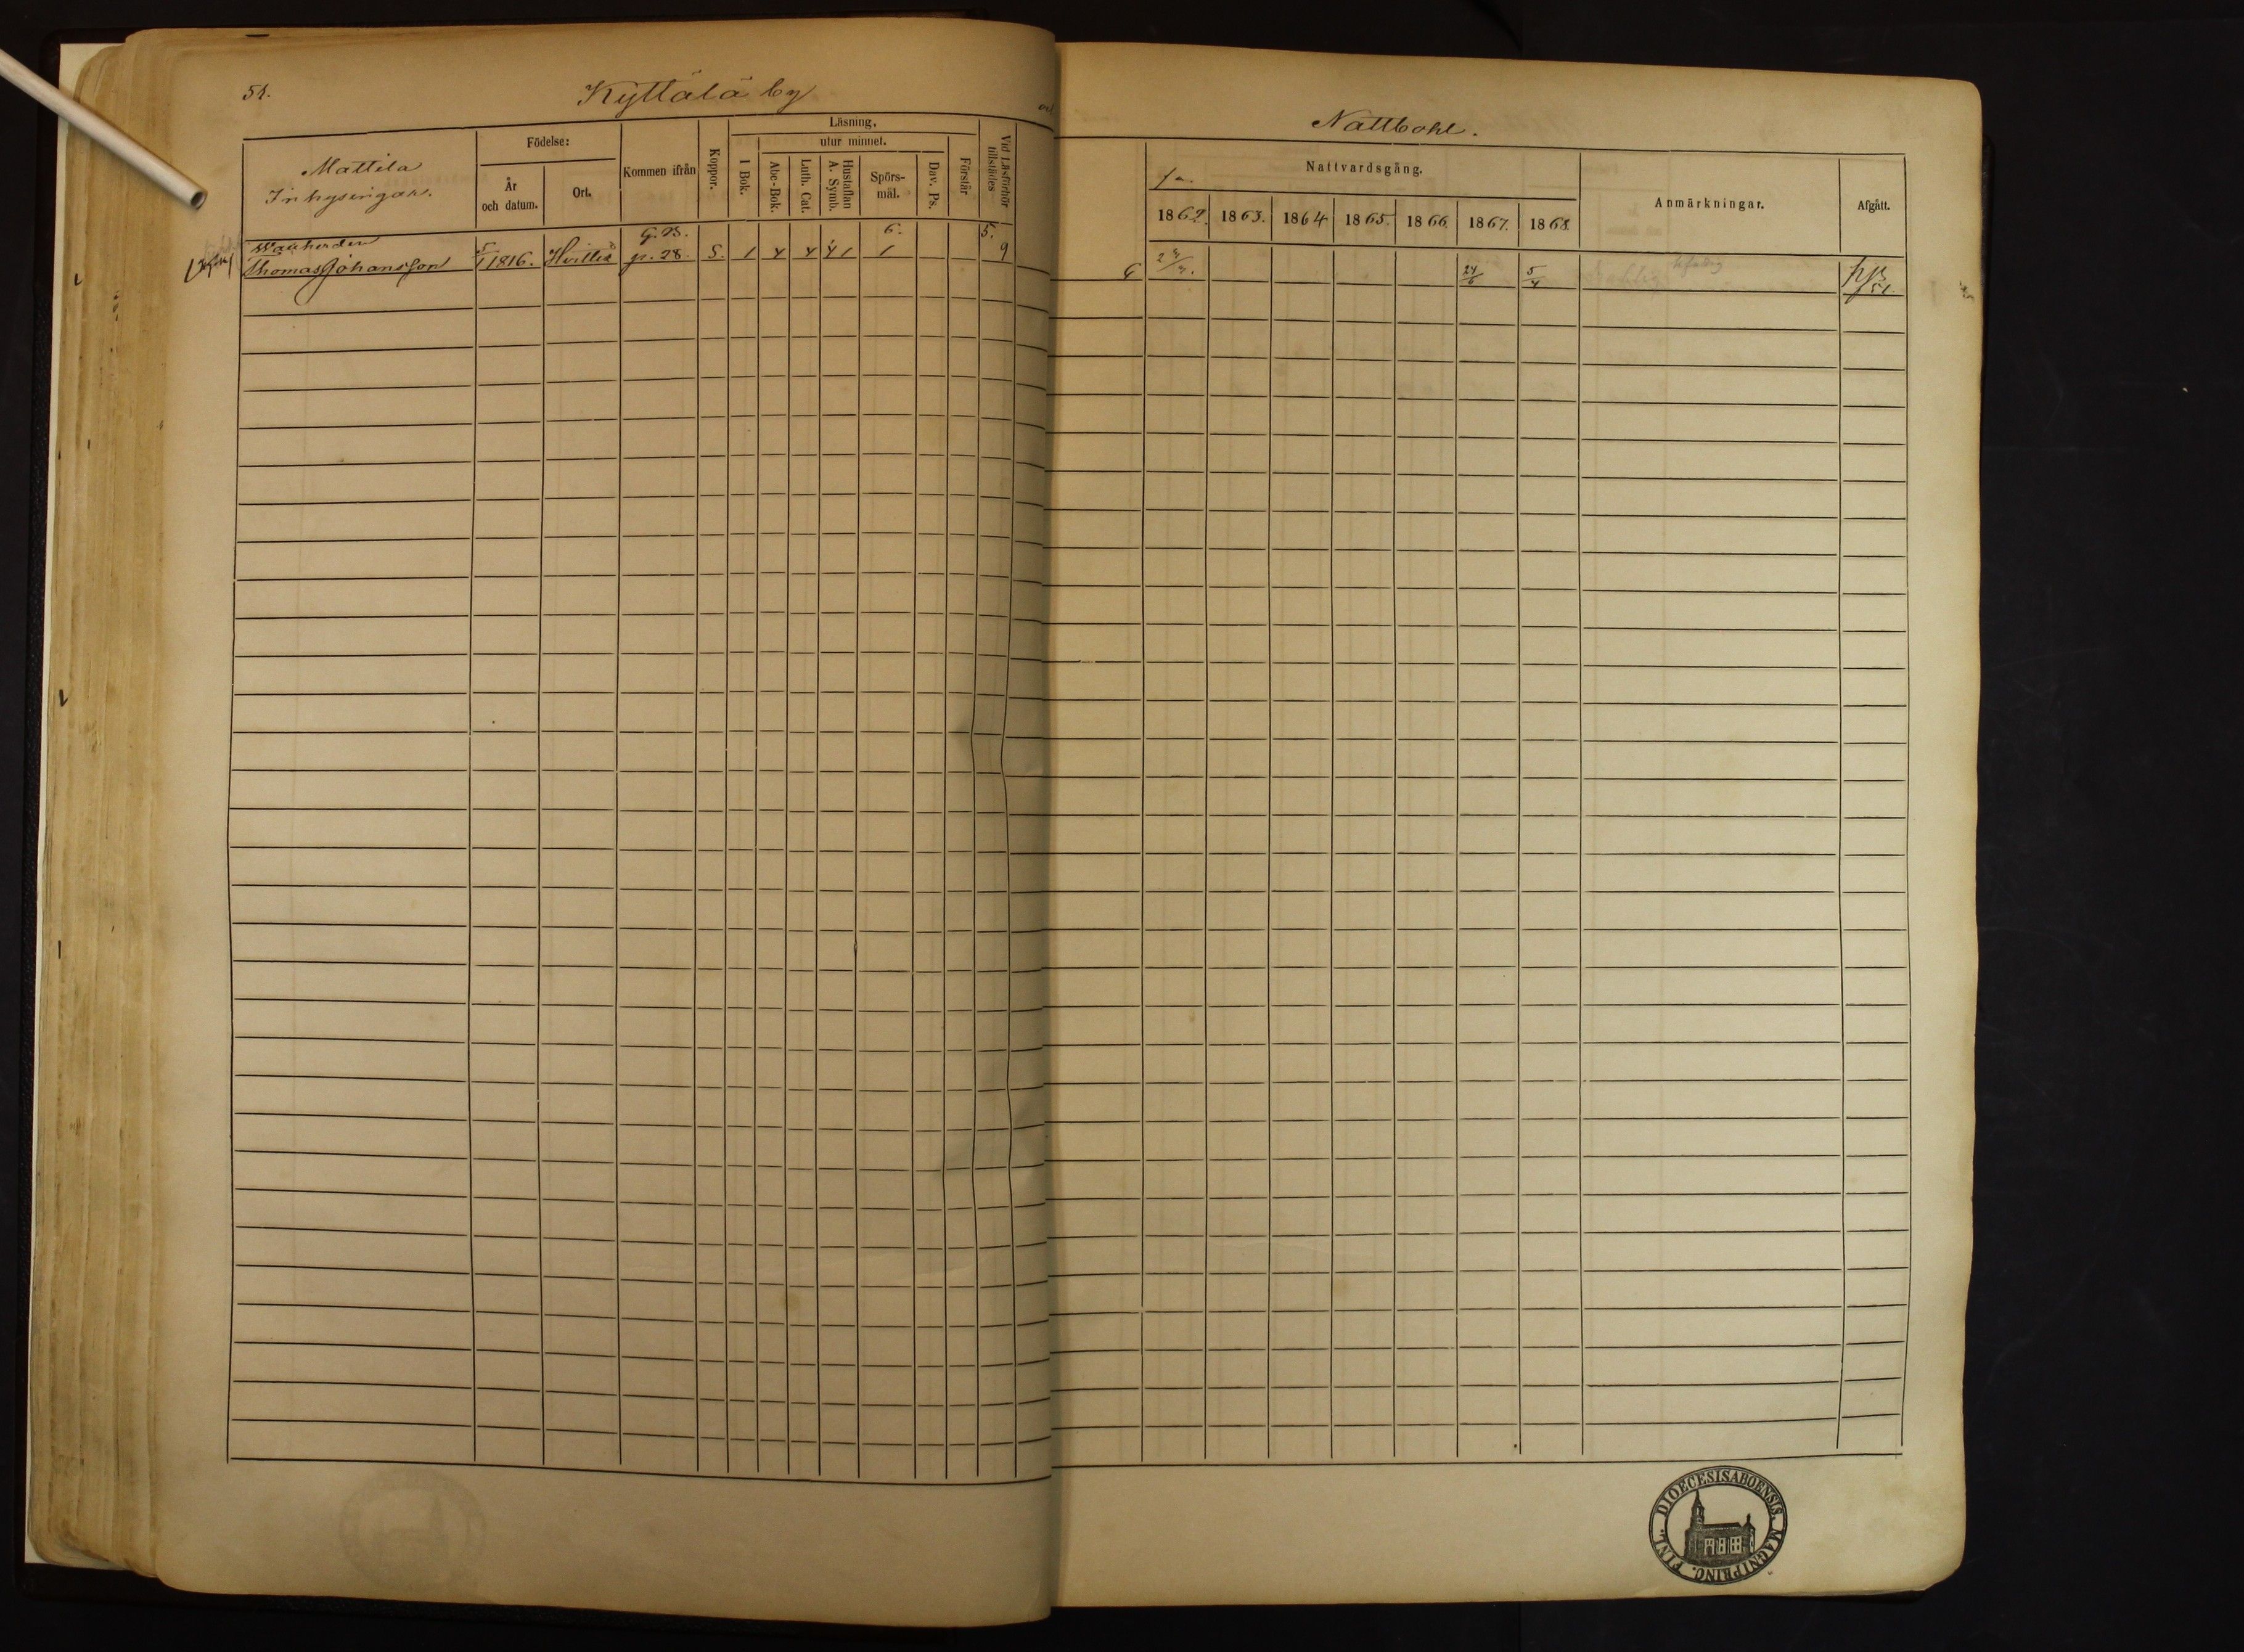 51.
Kyttälä by
Mattila
Inhysingar.
Födelse:
År
och datum.
Ort.
Kommen ifrån
Koppor.
Läsning.
I Bok.
utur minnet.
Abc-Bok.
Luth. Cat.
Hustaflan
A. Symb.
Spörs-
mål.
Dav. Ps.
Förstår
Vid Läsförhör
tillstädes
G. B. 6. 5.
Thomas Johansson 5/1 1816. Hvittis p. 28. S. 1 4 4 4 1 1 9
Nattbohl.
Nattvardsgång.
1862. 1863. 1864 1865. 1866. 1867. 1868.
Anmärkningar.
Afgått.
6 24/6 5/4
51.
DIOECESIS ABOENSIS. MAGNI PRINC. FINL.